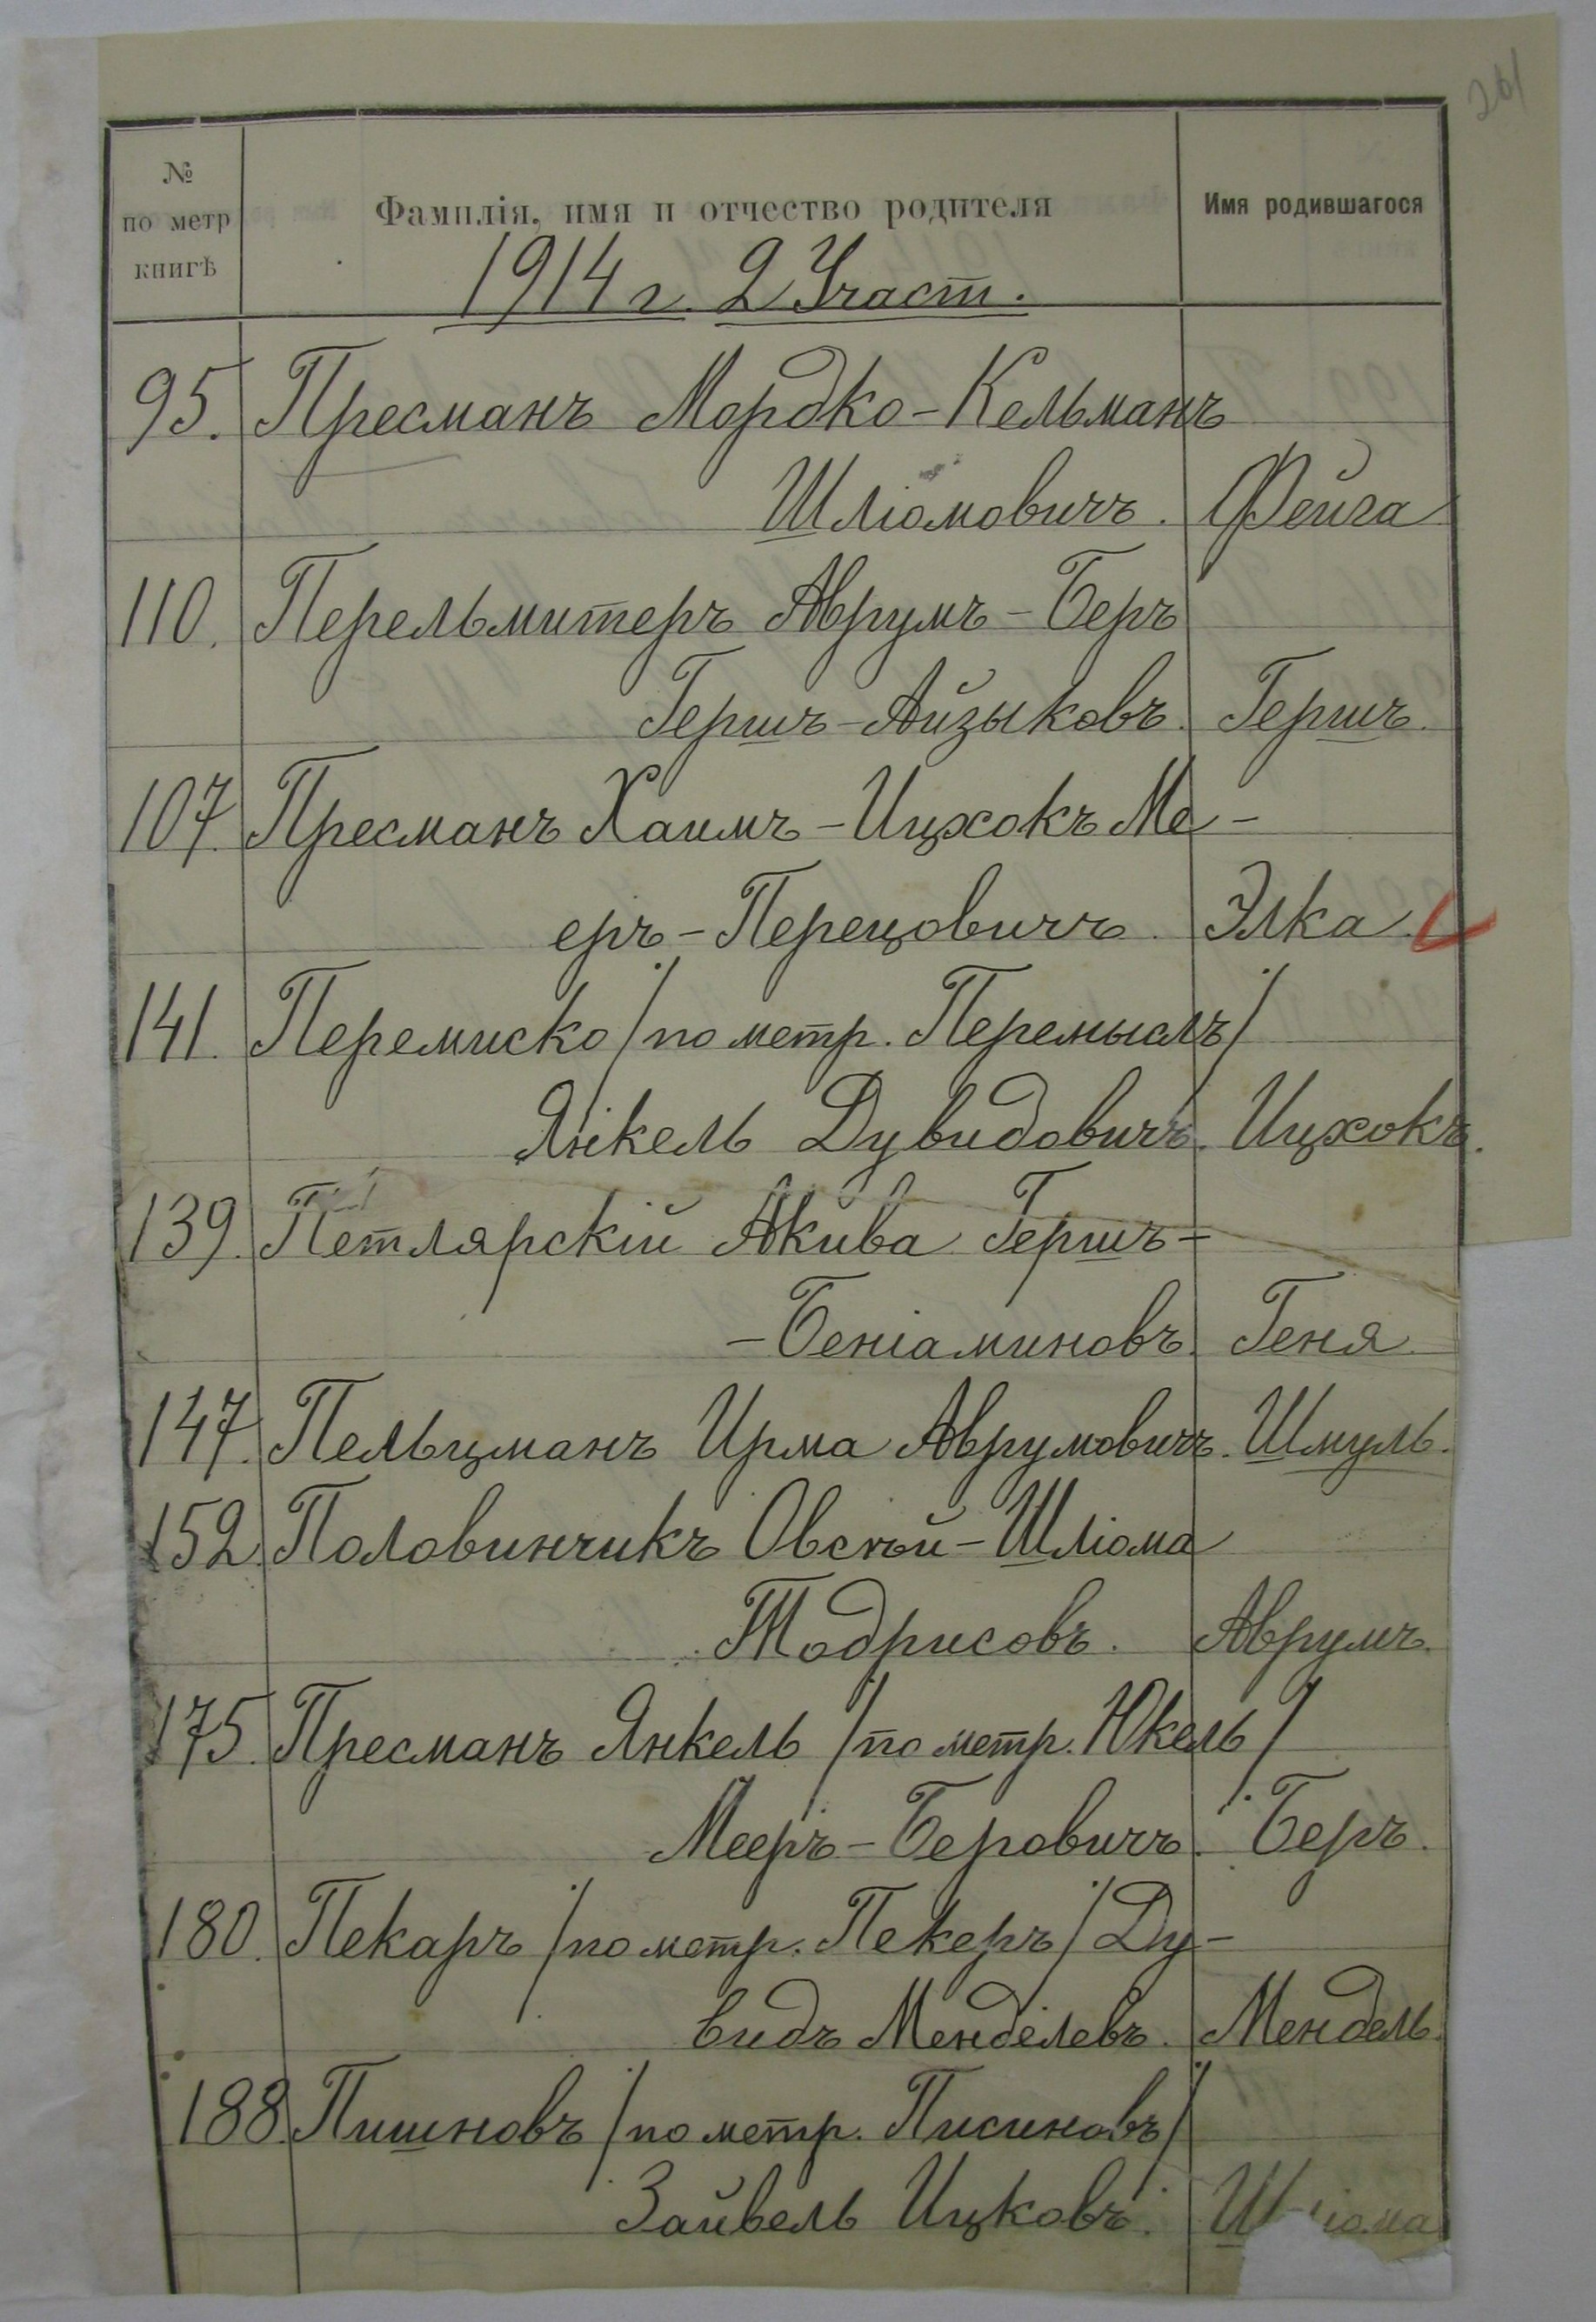 261
№
по метр
книгѣ
Фамилія, имя и отчество родителя
Имя родившагося
1914 г. 2 Участ.
95. Пресманъ Мордко-Кельманъ
Шліомовичъ. Фейга
110. Перельмитеръ Аврумъ-Беръ
Гершъ-Айзыковъ. Гершъ.
107 Пресманъ Хаимъ-Ицхокъ Ме-
еръ-Перецовичъ. Элка.
141. Перемиско / по метр. Перемыслъ /
Янкель Дувидовичъ. Ицхокъ.
139. Петлярскій Акива Гершъ-
-Беніаминовъ. Геня
147. Пельцманъ Ирма Аврумовичъ. Шмуль.
152. Половинчикъ Овсѣй-Шліома
Тодрисовъ. Аврумъ.
175. Пресманъ Янкель / по метр. Юкель /
Мееръ-Беровичъ. Беръ.
180. Пекаръ / по метр. Пекеръ / Ду-
видъ Менделевъ. Мендель.
188. Пишновъ / по метр. Писиновъ /
Зайвель Ицковъ.